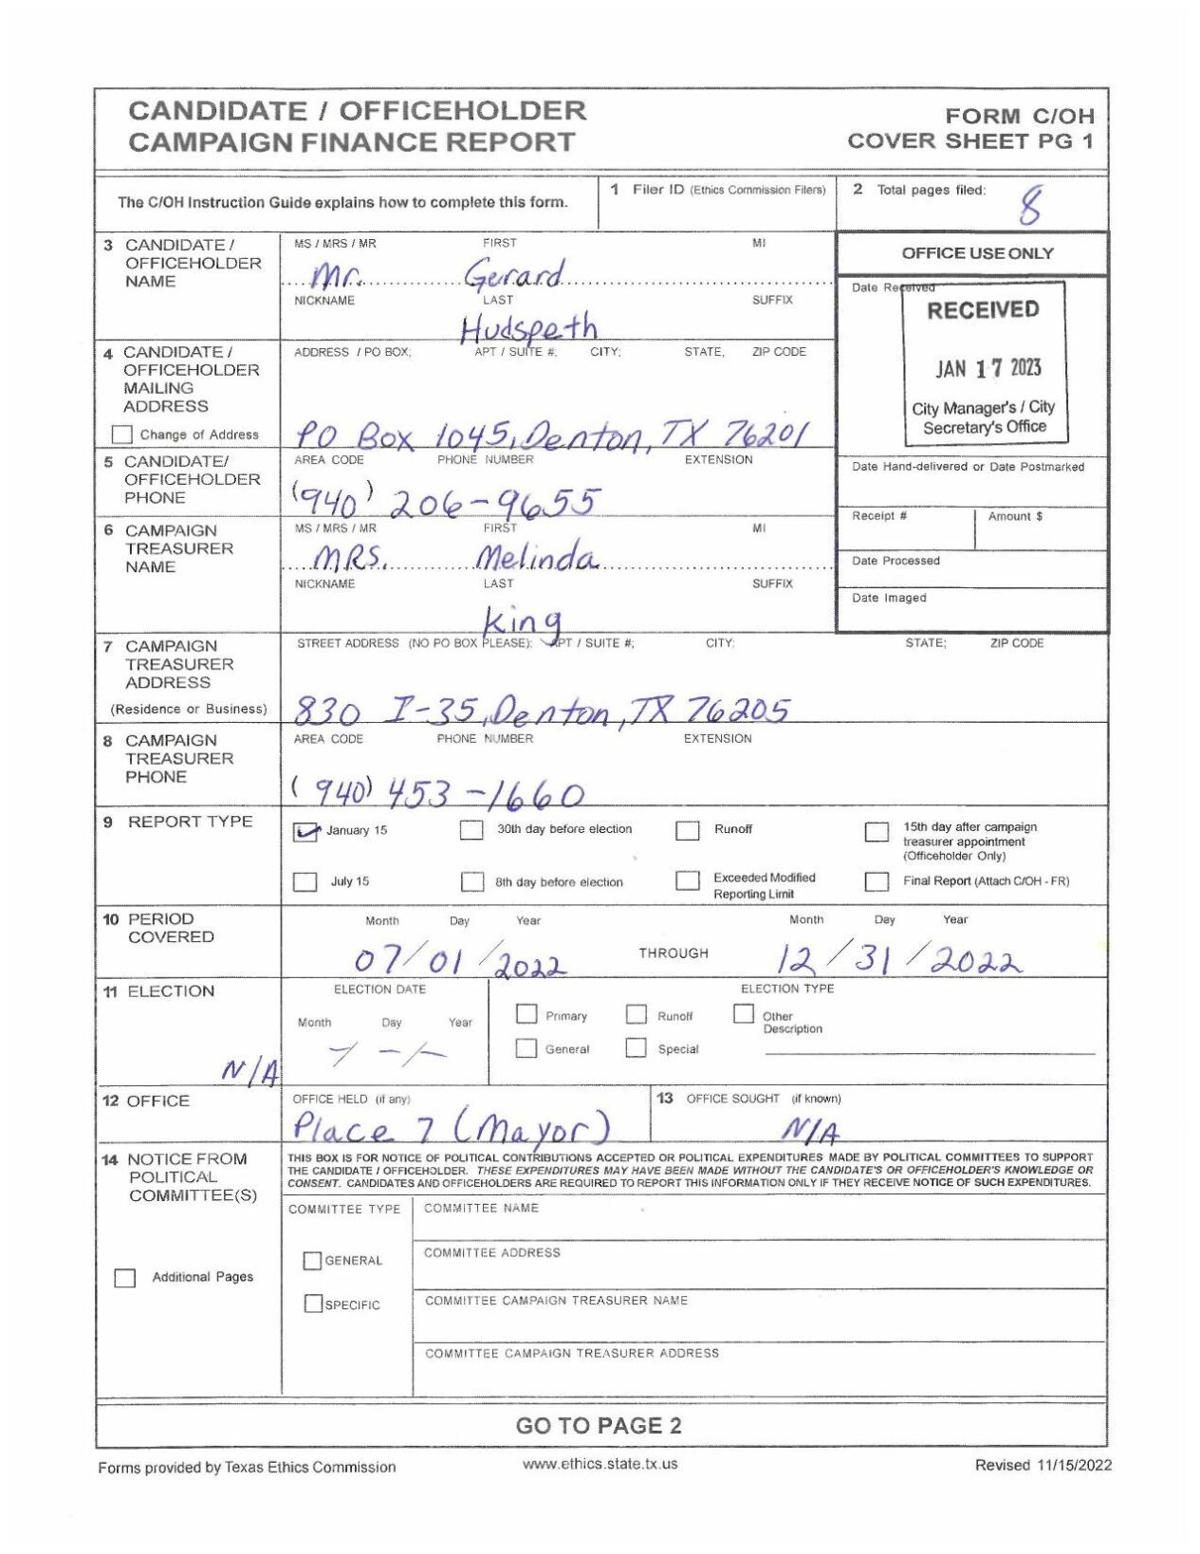 CANDIDATE / OFFICEHOLDER
CAMPAIGN FINANCE REPORT
FORM C/OH
COVER SHEET PG 1
The C/OH Instruction Guide explains how to complete this form.
1 Filer ID (Ethics Commission Filers)
2 Total pages filed:
8
3 CANDIDATE / OFFICEHOLDER NAME
MS / MRS / MR FIRST MI
Mr. Gerard
NICKNAME LAST SUFFIX
Hudspeth
OFFICE USE ONLY
Date Received
RECEIVED
JAN 17 2023
City Manager's / City
Secretary's Office
4 CANDIDATE / OFFICEHOLDER MAILING ADDRESS
Change of Address
ADDRESS / PO BOX; APT / SUITE #; CITY; STATE; ZIP CODE
PO Box 1045, Denton, TX 76201
5 CANDIDATE/ OFFICEHOLDER PHONE
AREA CODE PHONE NUMBER EXTENSION
(940) 206-9655
Date Hand-delivered or Date Postmarked
Receipt # Amount $
Date Processed
Date Imaged
6 CAMPAIGN TREASURER NAME
MS / MRS / MR FIRST MI
MRS. Melinda
NICKNAME LAST SUFFIX
King
7 CAMPAIGN TREASURER ADDRESS
(Residence or Business)
STREET ADDRESS (NO PO BOX PLEASE); APT / SUITE #; CITY; STATE; ZIP CODE
830 I-35, Denton, TX 76205
8 CAMPAIGN TREASURER PHONE
AREA CODE PHONE NUMBER EXTENSION
(940) 453-1660
9 REPORT TYPE
January 15 30th day before election Runoff 15th day after campaign treasurer appointment (Officeholder Only)
July 15 8th day before election Exceeded Modified Reporting Limit Final Report (Attach C/OH - FR)
10 PERIOD COVERED
Month Day Year Month Day Year
07/01/2022 THROUGH 12/31/2022
11 ELECTION
N/A
ELECTION DATE
Month Day Year
/ - / -
ELECTION TYPE
Primary Runoff Other Description
General Special
12 OFFICE
OFFICE HELD (if any)
Place 7 (Mayor)
13 OFFICE SOUGHT (if known)
N/A
14 NOTICE FROM POLITICAL COMMITTEE(S)
Additional Pages
THIS BOX IS FOR NOTICE OF POLITICAL CONTRIBUTIONS ACCEPTED OR POLITICAL EXPENDITURES MADE BY POLITICAL COMMITTEES TO SUPPORT
THE CANDIDATE / OFFICEHOLDER. THESE EXPENDITURES MAY HAVE BEEN MADE WITHOUT THE CANDIDATE'S OR OFFICEHOLDER'S KNOWLEDGE OR
CONSENT. CANDIDATES AND OFFICEHOLDERS ARE REQUIRED TO REPORT THIS INFORMATION ONLY IF THEY RECEIVE NOTICE OF SUCH EXPENDITURES.
COMMITTEE TYPE
GENERAL
SPECIFIC
COMMITTEE NAME
COMMITTEE ADDRESS
COMMITTEE CAMPAIGN TREASURER NAME
COMMITTEE CAMPAIGN TREASURER ADDRESS
GO TO PAGE 2
Forms provided by Texas Ethics Commission www.ethics.state.tx.us Revised 11/15/2022